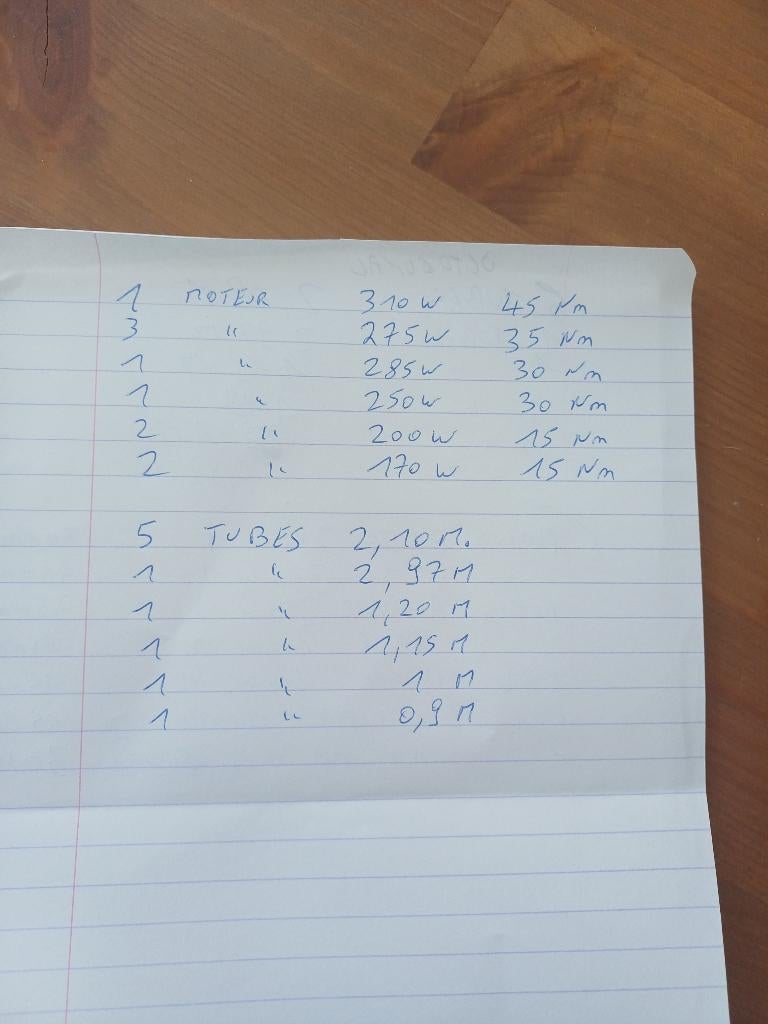 1 MOTEUR 310 W 45 Nm
3 " 275 W 35 Nm
1 " 285 W 30 Nm
1 " 250 W 30 Nm
2 " 200 W 15 Nm
2 " 170 W 15 Nm
5 TUBES 2,10 M.
1 " 2,97 M
1 " 1,20 M
1 " 1,15 M
1 " 1 M
1 " 0,9 M